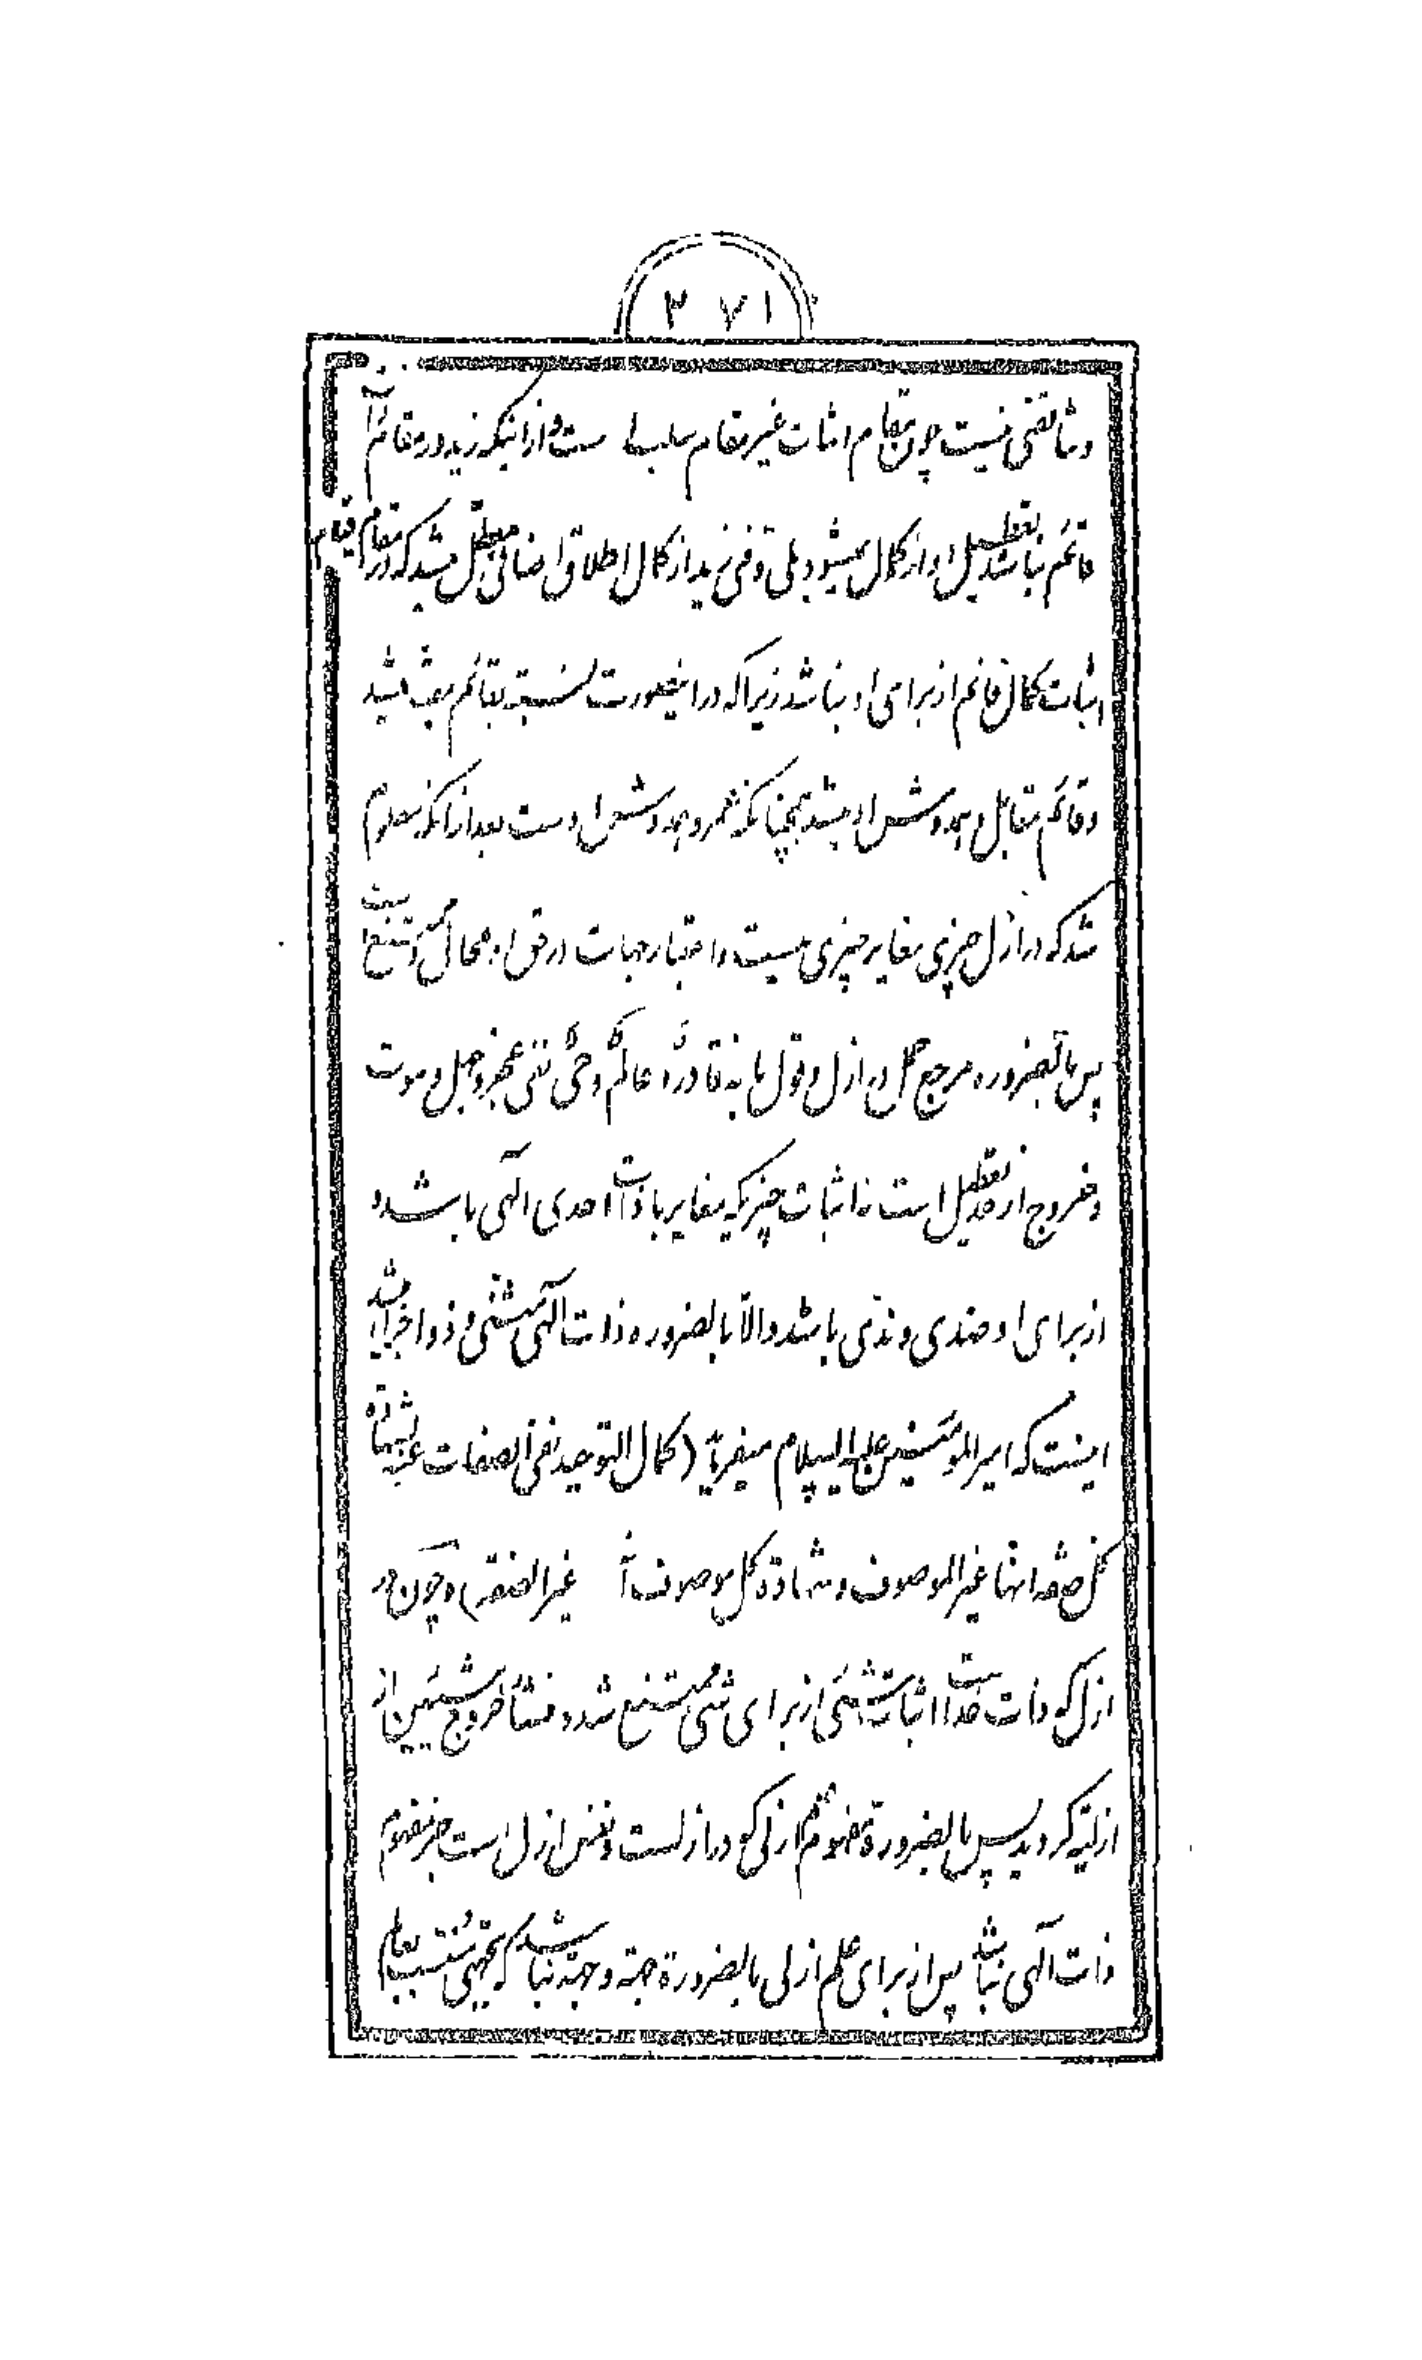 ۳۷۱
و تناقضی نیست چون مقام اثبات غیر مقام سلب است و از اینکه زید در مقام
قائم نباشد تعطیل او از کمال نمیشود بلی وقتی زید از کمال اطلاق اضافی معطل میشد که در مقام قیام
اثبات کمال قائم از برای او نباشد زیرا که در اینصورت نسبة بقائم میشد
و قائم مقابل و همدوش او میشد همچنانکه عمرو همدوش اوست بعد از آنکه معلوم
شد که در ازل چیزی مغایر چیزی نیست و اعتبار جهات در حق او محال و ممتنع است
پس بالضروره مرجع کل در ازل و قول ما بانه قادر و عالم و حی نفی عجز و جهل و موت
و خروج از حد تعطیل است نه اثبات چیزیکه مغایر با ذات احدی الهی باشد و
از برای او ضدی و ندی باشد والا بالضروره ذات الهی مثنی و ذو اجزا باشد
اینست که امیر المؤمنین علیه السلام میفرماید (کمال التوحید نفی الصفات عنه لشهادة
کل صفة انها غیر الموصوف و شهادة کل موصوف انه غیر الصفة) و چون در
ازل که ذات خداست اثبات شیئی از برای شی ممتنع شد و منشأ خروج شیئین از
ازلیة گردید پس بالضرورة مفهوم علم ازلی که در ازلست و نفس ازل است جز مفهوم
ذات الهی نباشد پس از برای علم ازلی بالضرورة جهة و جهة نباشد که بجهتی منتسب بعالم